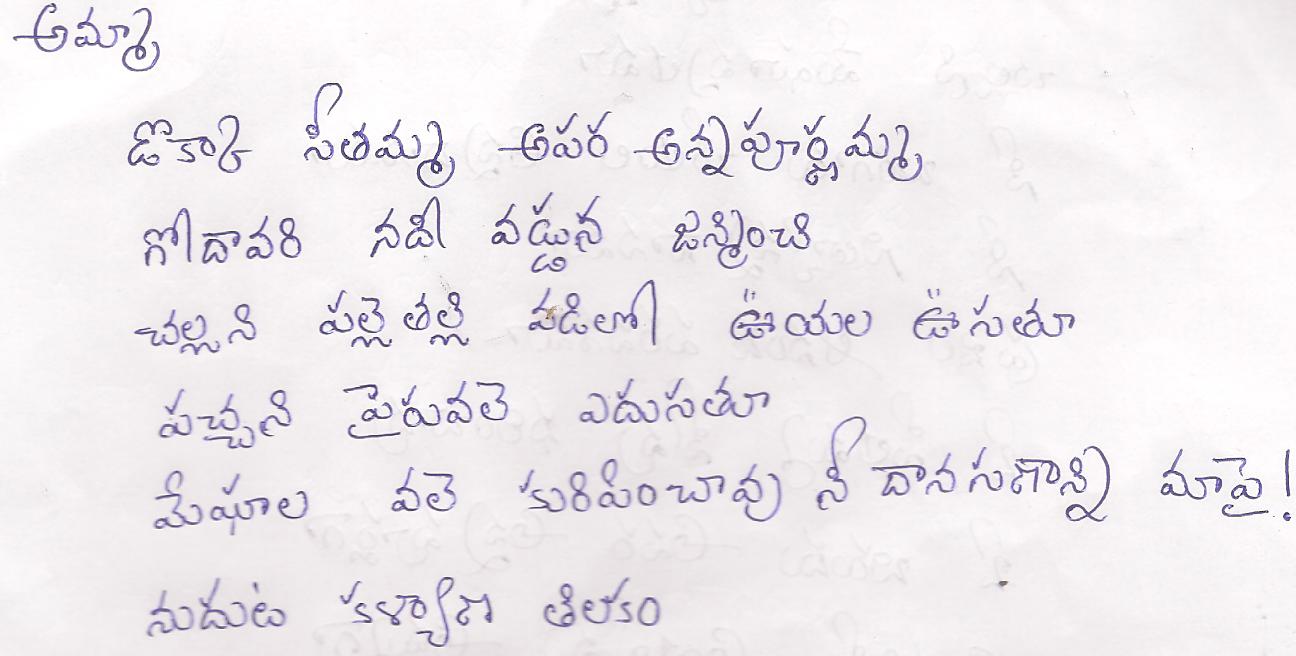 అమ్మా
డొక్కా సీతమ్మ అపర అన్నపూర్ణమ్మ
గోదావరి నదీ వడ్డున జన్మించి
చల్లని పల్లెతల్లి వడిలో ఊయల ఊసతూ
పచ్చని పైరువలె ఎదుసతూ
మేఘాల వలె కురిపించావు నీ దానసణాన్ని మాపై!
నుదుట కళ్యాణ తిలకం